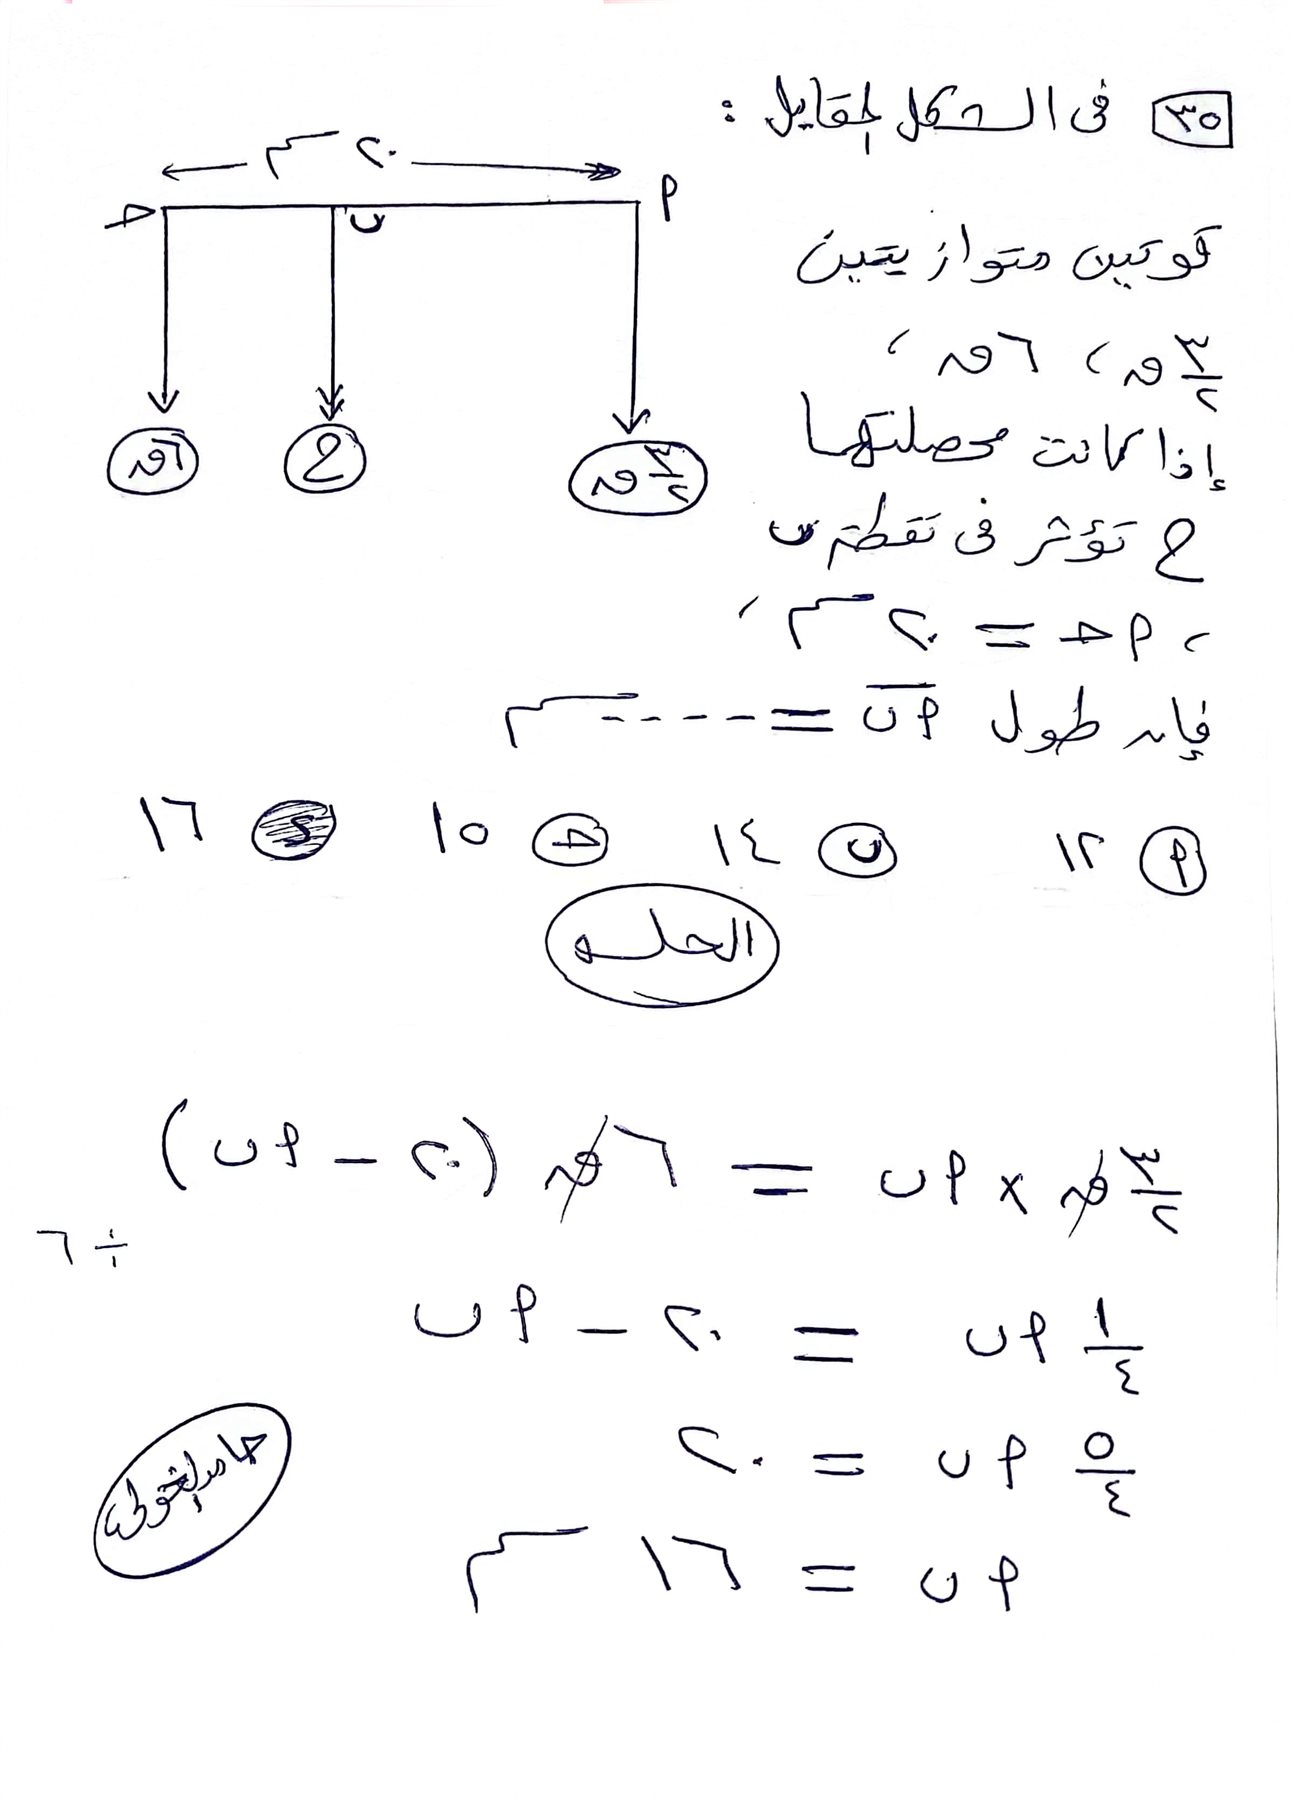 ٣٥ فى الشكل المقابل :
٢٠ سم
ح ب أ
٦ق ح ٣/٢ ق
قوتين متوازيتين
٣/٢ ق ، ٦ق ،
إذا كانت محصلتهما
ح تؤثر فى نقطة ب
، أ ح = ٢٠ سم ،
فإن طول أ ب = ---- سم
أ ١٢ ب ١٤ ح ١٥ د ١٦
الحل
٣/٢ ق × أ ب = ٦ ق (٢٠ - أ ب)
÷ ٦
١/٤ أ ب = ٢٠ - أ ب
٥/٤ أ ب = ٢٠
أ ب = ١٦ سم
حامد الخولى